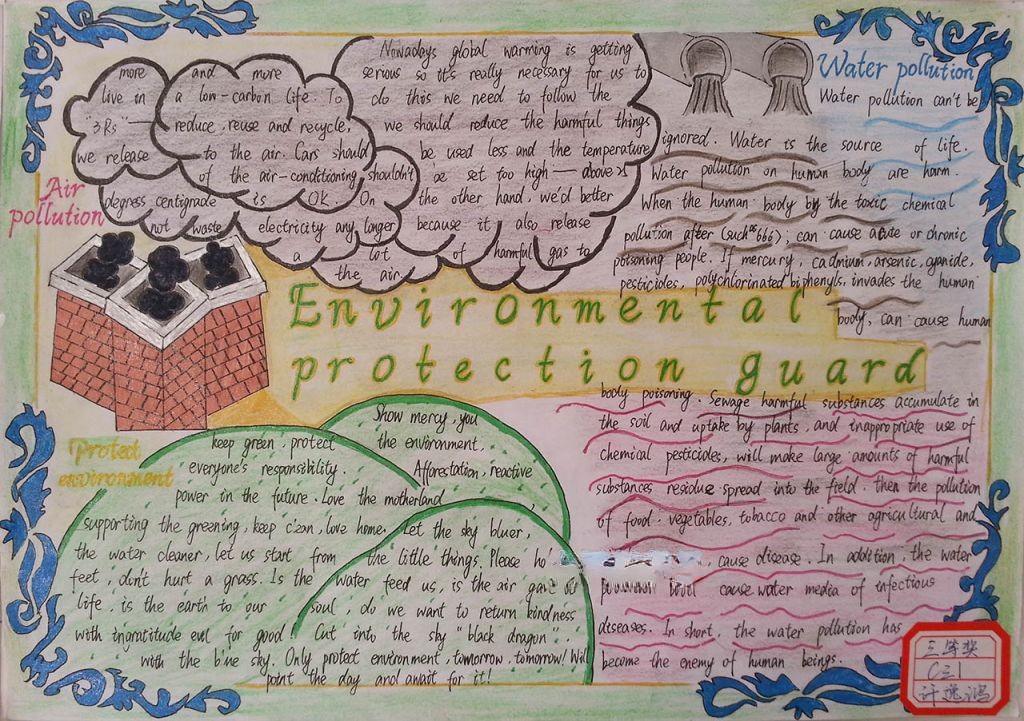 Nowadays global warming is getting
more and more serious so it's really necessary for us to
live in a low-carbon life. To do this we need to follow the
"3Rs" — reduce, reuse and recycle, we should reduce the harmful things
we release to the air. Cars should be used less and the temperature
of the air-conditioning shouldn't be set too high — above
degress centigrade is OK. On the other hand, we'd better
not waste electricity any longer because it also release
a lot of harmful gas to
the air.
Air
pollution
Water pollution
Water pollution can't be
ignored. Water is the source of life.
Water pollution on human body are harm.
When the human body by the toxic chemical
pollution after (such as 666), can cause acute or chronic
poisoning people. If mercury, cadmium, arsenic, cyanide,
pesticides, polychlorinated biphenyls, invades the human
body, can cause human
Environmental
protection guard
body poisoning. Sewage harmful substances accumulate in
the soil and uptake by plants, and inappropriate use of
chemical pesticides, will make large amounts of harmful
substances residue spread into the field. then the pollution
of food. vegetables, tobacco and other agricultural and
, cause disease. In addition, the water
cause water media of infectious
diseases. In short, the water pollution has
become the enemy of human beings.
Protect
environment
Show mercy, you
keep green, protect the environment,
everyone's responsibility. Afforestation, reactive
power in the future. Love the motherland
supporting the greening, keep clean, love home. Let the sky bluer,
the water cleaner, let us start from the little things. Please ho
feet, don't hurt a grass. Is the water feed us, is the air gave us
life, is the earth to our soul, do we want to return kindness
with ingratitude evil for good! Cut into the sky "black dragon".
with the blue sky. Only protect environment, tomorrow, tomorrow! Will
point the day and await for it!
三等奖
C三1
许逸鸿